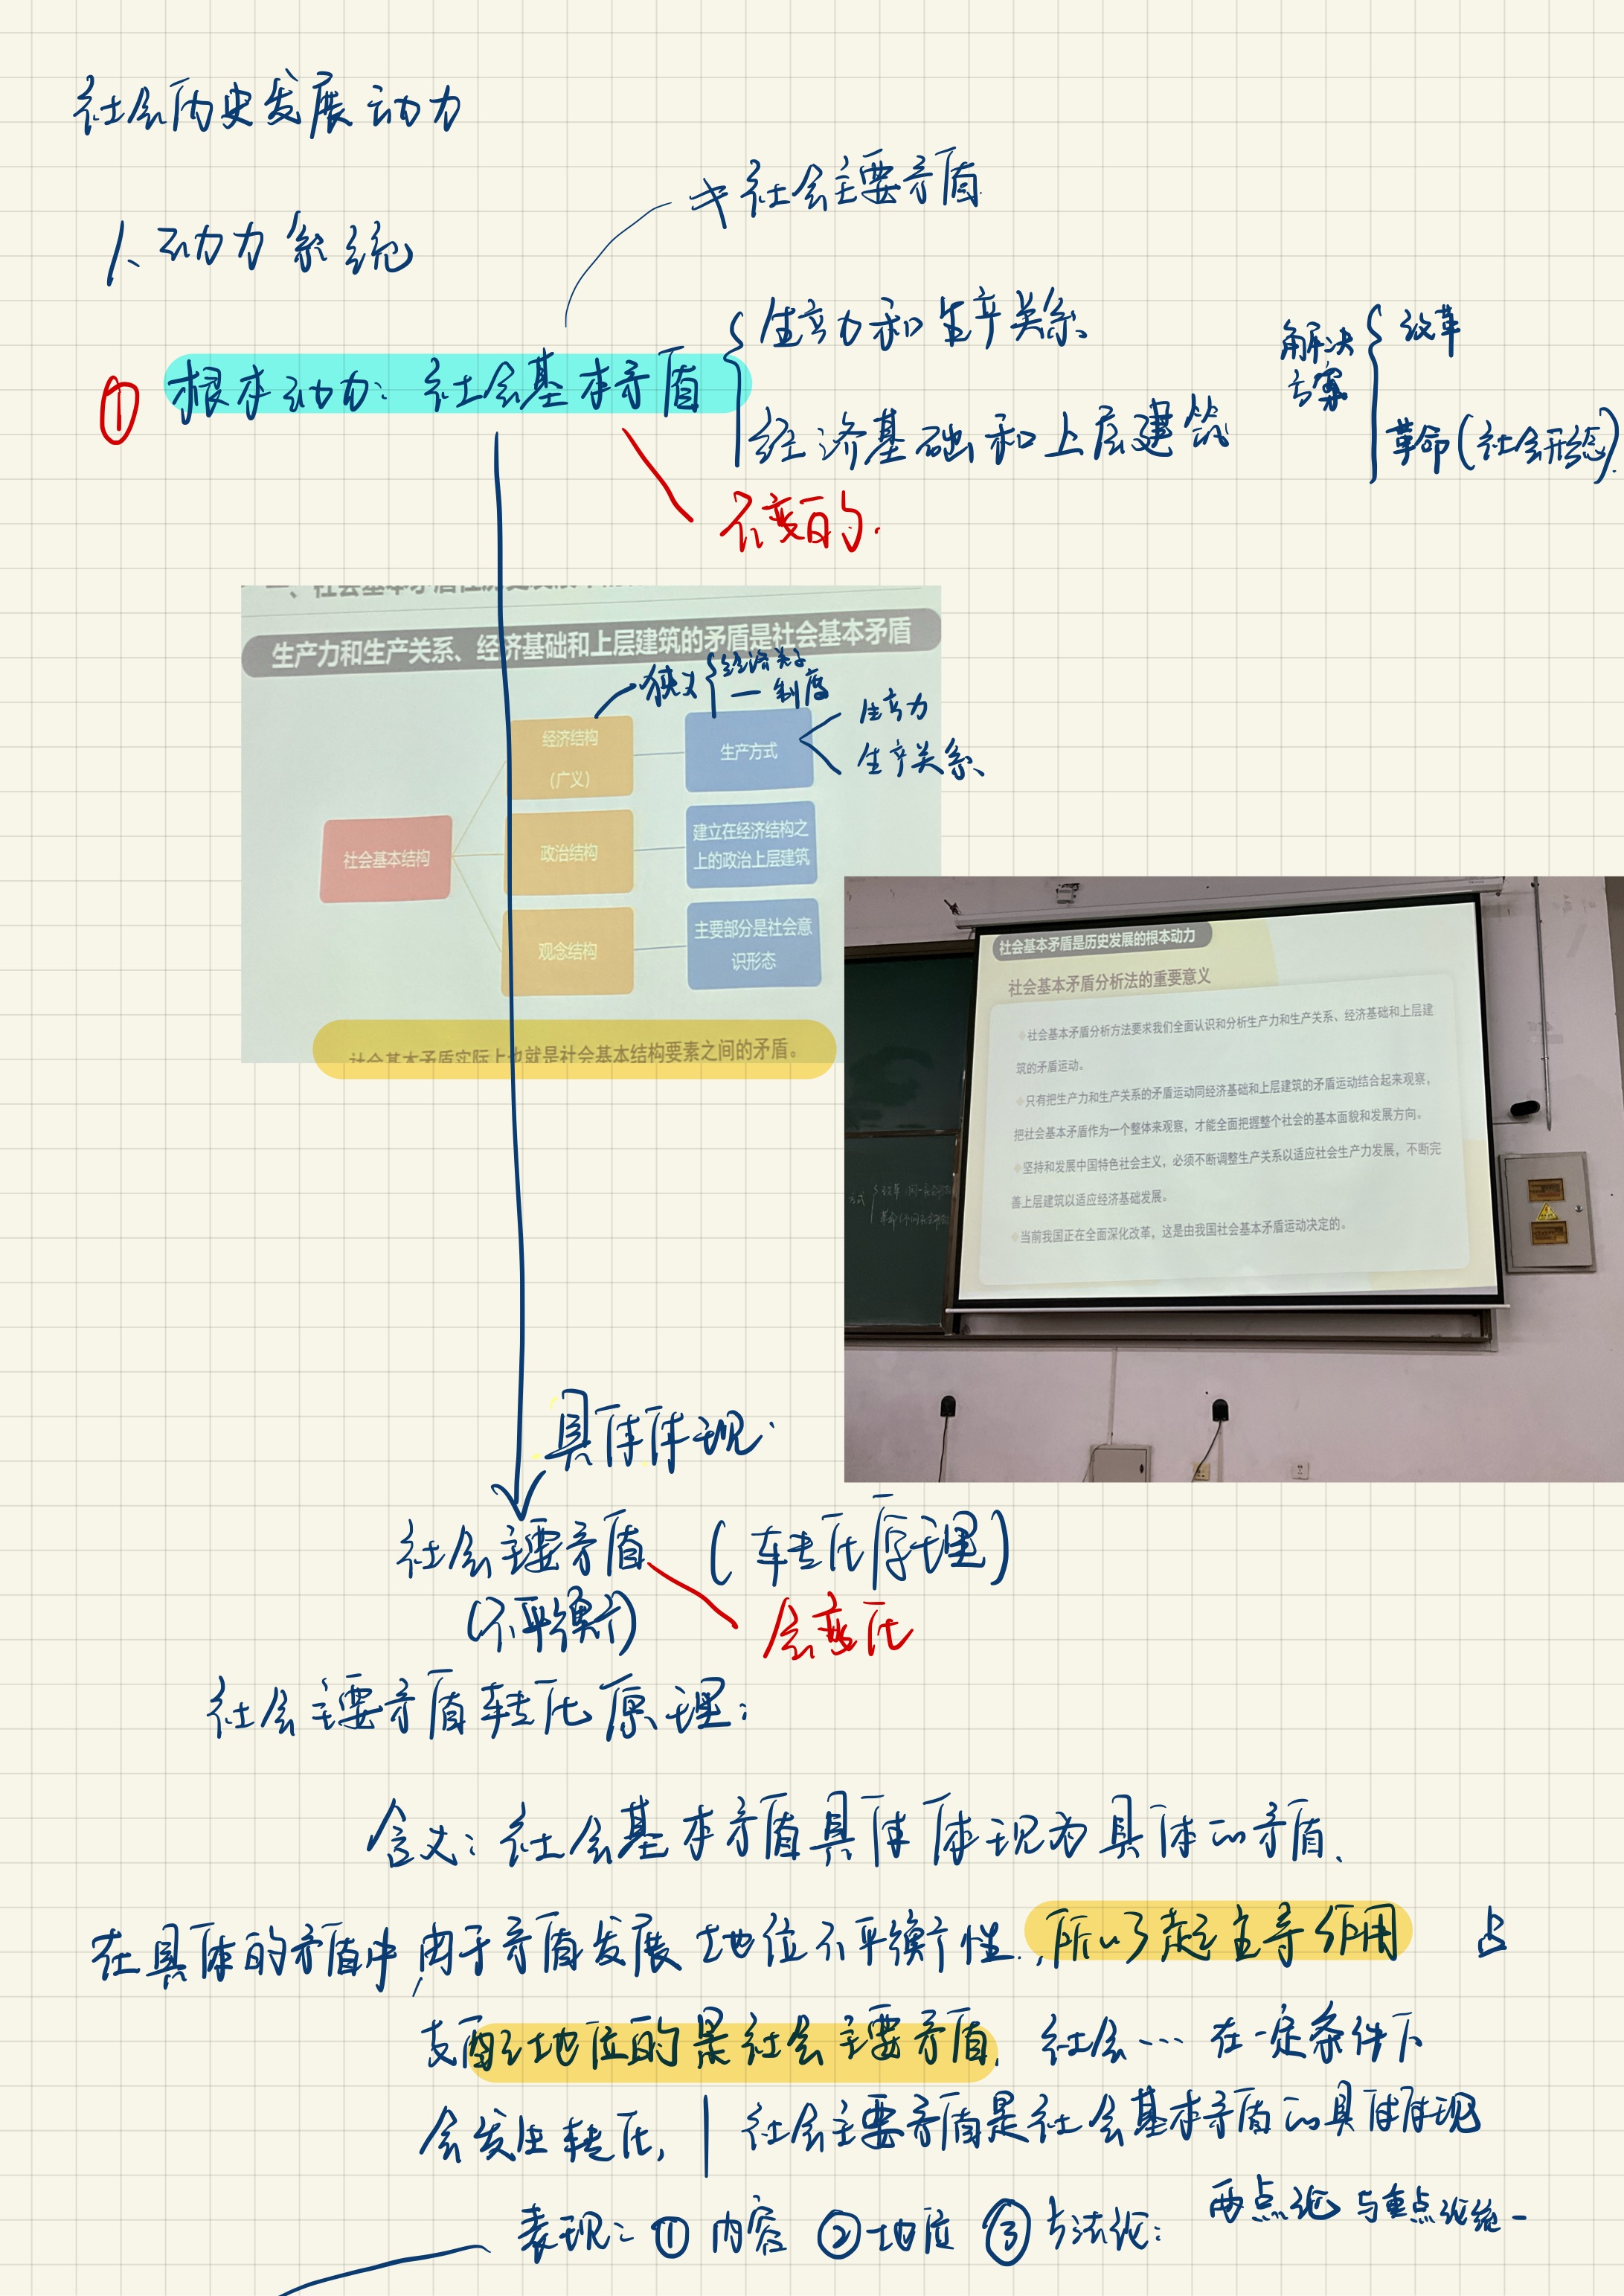 社会历史发展动力
社会主要矛盾
1、动力系统
生产力和生产关系
① 根本动力：社会基本矛盾
经济基础和上层建筑
解决方案
改革
革命(社会形态)
不变的.
生产力和生产关系、经济基础和上层建筑的矛盾是社会基本矛盾
狭义
经济关系
制度
生产力
生产关系
经济结构
（广义）
生产方式
社会基本结构
政治结构
建立在经济结构之
上的政治上层建筑
观念结构
主要部分是社会意
识形态
社会基本矛盾实际上也就是社会基本结构要素之间的矛盾。
社会基本矛盾是历史发展的根本动力
社会基本矛盾分析法的重要意义
社会基本矛盾分析方法要求我们全面认识和分析生产力和生产关系、经济基础和上层建
筑的矛盾运动。
只有把生产力和生产关系的矛盾运动同经济基础和上层建筑的矛盾运动结合起来观察，
把社会基本矛盾作为一个整体来观察，才能全面把握整个社会的基本面貌和发展方向。
坚持和发展中国特色社会主义，必须不断调整生产关系以适应社会生产力发展，不断完
善上层建筑以适应经济基础发展。
当前我国正在全面深化改革，这是由我国社会基本矛盾运动决定的。
具体体现：
社会主要矛盾 (转化原理)
(不平衡)
会变化
社会主要矛盾转化原理：
含义：社会基本矛盾具体体现为具体的矛盾、
在具体的矛盾中,由于矛盾发展地位不平衡性.,所以起主导作用 占
支配地位的是社会主要矛盾. 社会… 在一定条件下
会发生转化, | 社会主要矛盾是社会基本矛盾的具体体现
表现：① 内容 ② 地位 ③ 方法论： 两点论与重点论统一